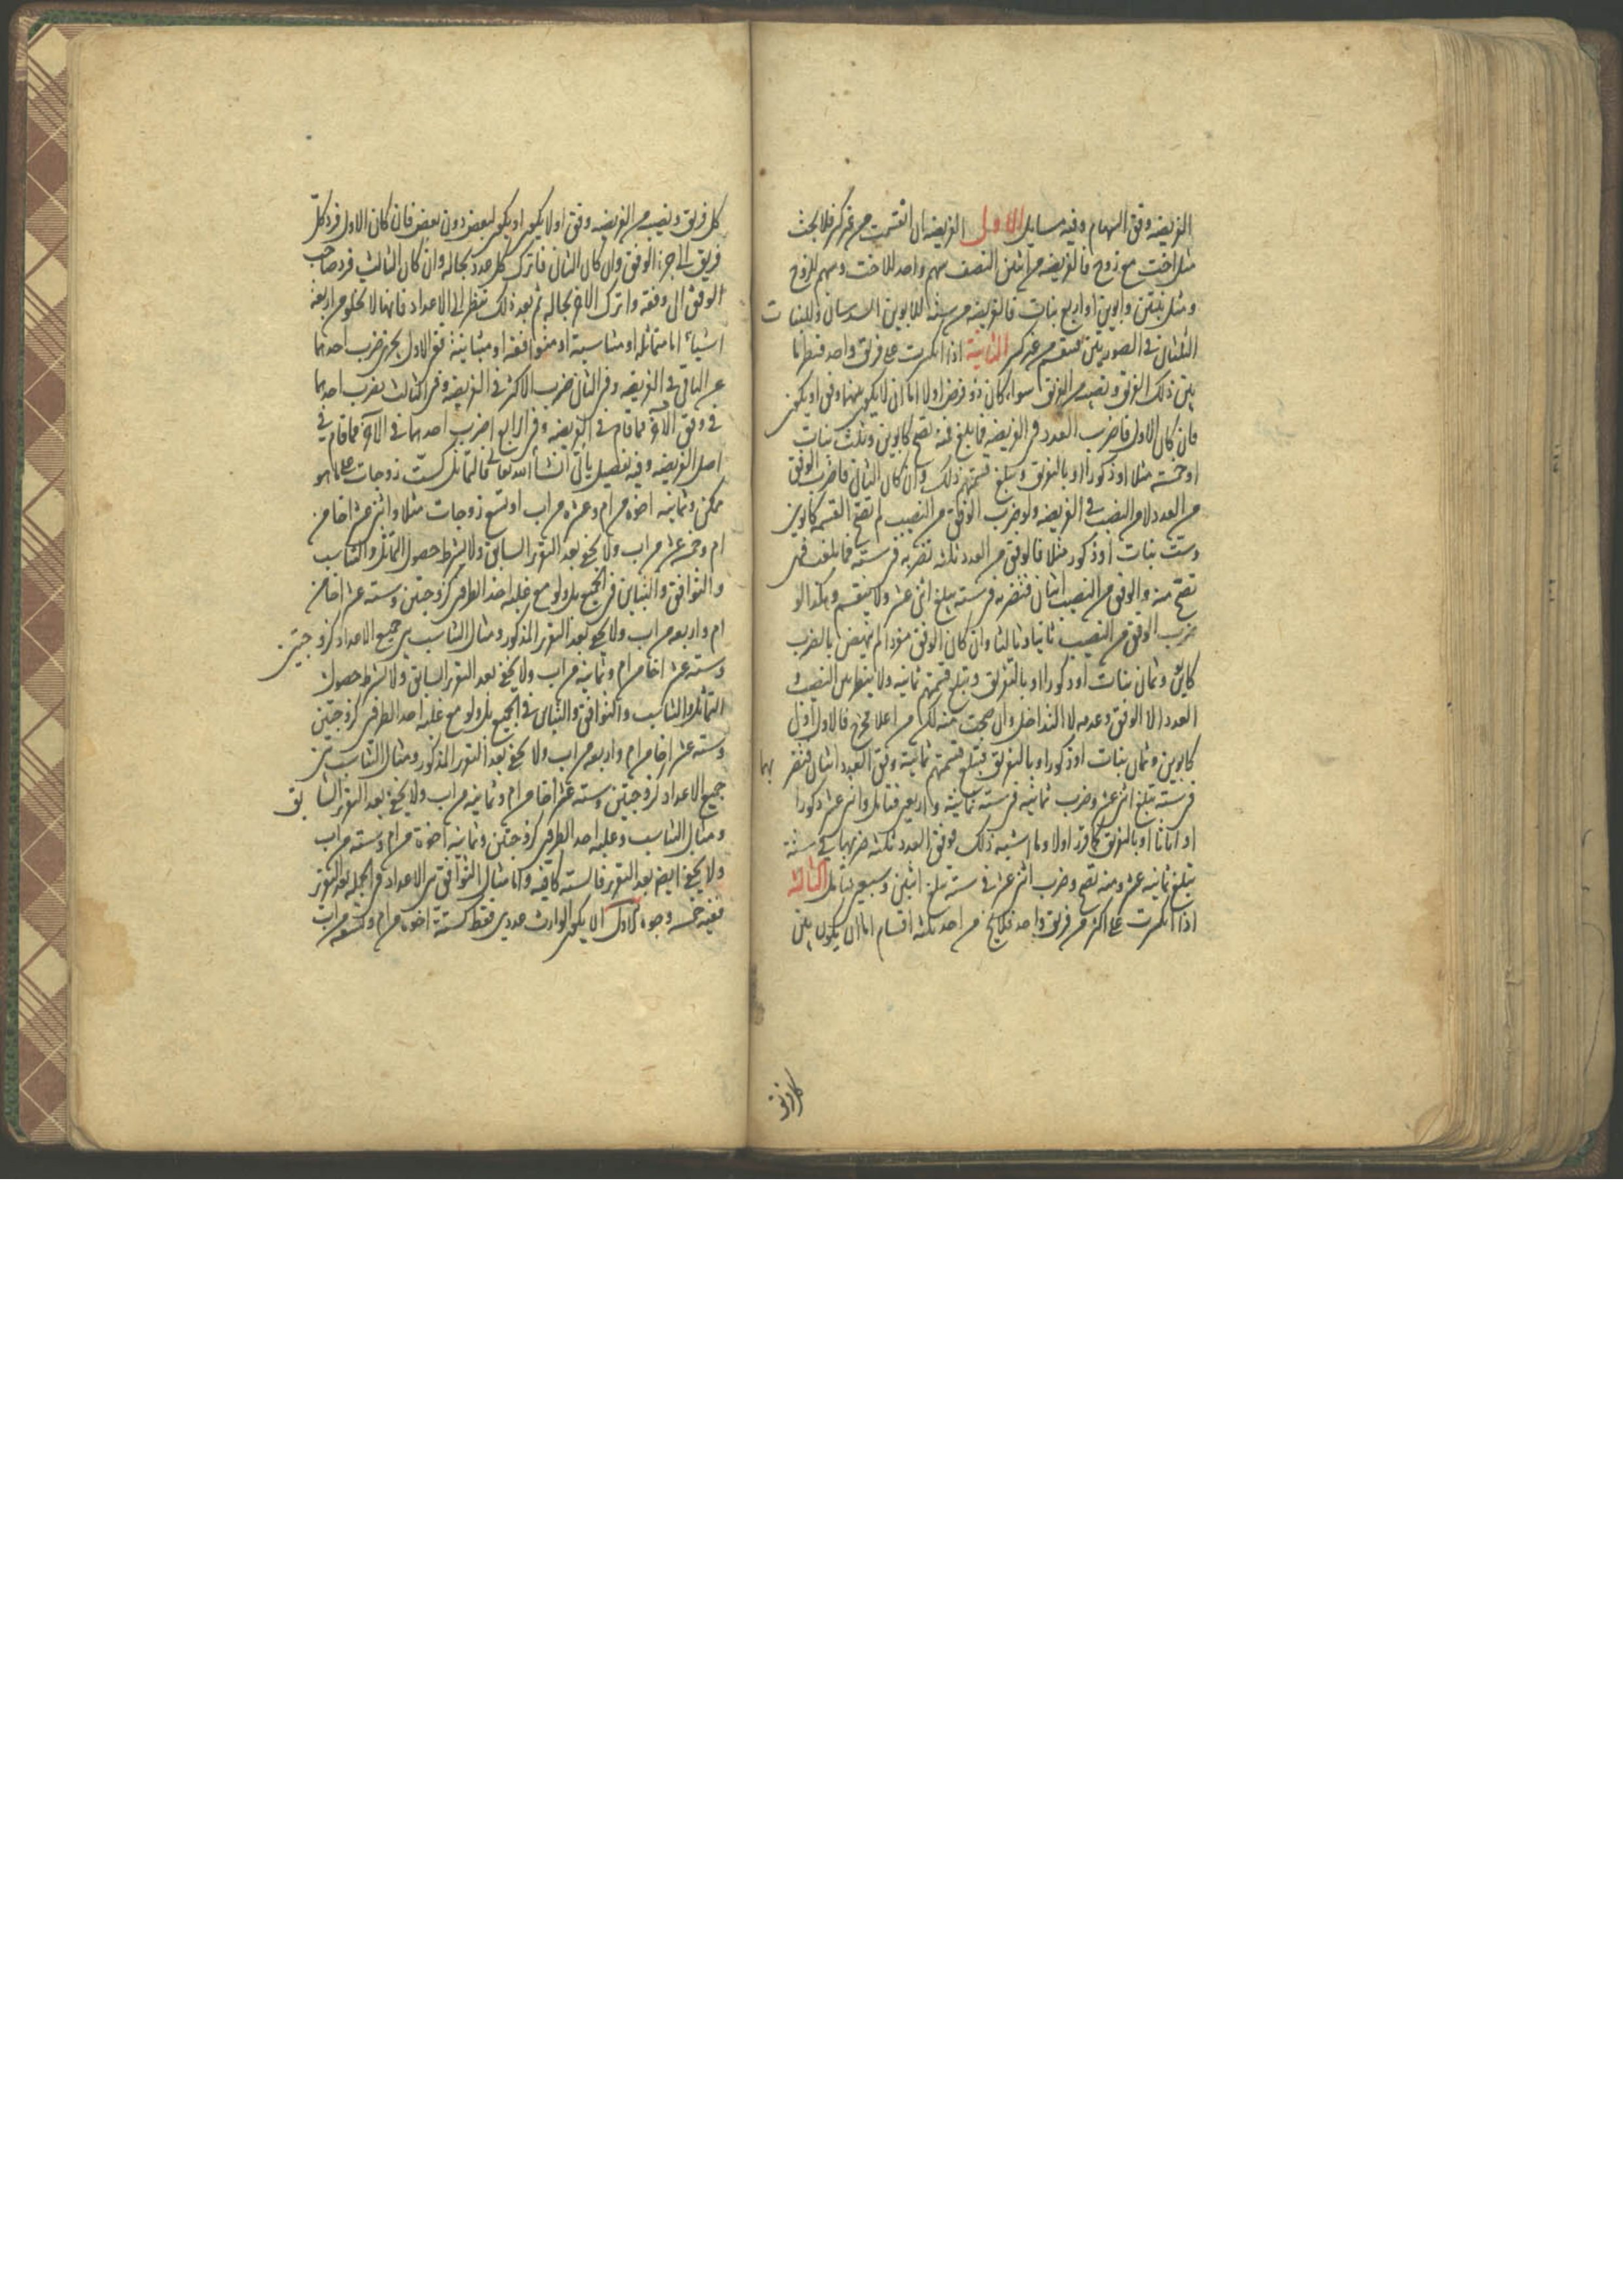 الفريضه وفق السهام وفيه مسايل الاول الفريضه ان انقسمت من غير كسر فلا بحث
مثل اخت مع زوج فالفريضه من اثنين النصف سهم واحد للاخت وسهم للزوج
ومثل بنتين وابوين او اربع بنات فالفريضه من سته للابوين السدسان وللبنات
الثلثان في الصورتين تنقسم من غير كسر الثانية اذا انكسرت على فريق واحد فنظرنا
بين ذلك الفريق ونصيب الفريق سواء كان ذو فرض اولا اما ان لا يكون بينهما وفق او يكون
فان كان الاول فاضرب العدد في الفريضه فما بلغ فمنه تصح كابوين وثلث بنات
او خمسه مثلا او ذكورا او بالتفريق وتبلغ قسمتهم ذلك وان كان الثاني فاضرب الوفق
من العدد لا من النصيب في الفريضه ولو ضرب الوفق من النصيب لم تصح القسمه كابوين
وست بنات او ذكور مثلا فالوفق من العدد ثلثه تضربه في سته فما بلغت فهي
تصح منه والوفق من النصيب اثنان فتضربه في سته يبلغ اثني عشر ولا ينقسم وهكذا لو
ضرب الوفق من النصيب ثانيا وثالثا وان كان الوفق مؤدا لم ينهض بالضرب
كابن وثمان بنات او ذكورا او بالتفريق وتبلغ قسمتهم ثمانيه ولا ينظر بين النصيب و
العدد الا الوفق وعدمه لا التداخل وان صحت منه لكن من اعلا مخرج فالاول اول
كابوين وثمان بنات او ذكورا او بالتفريق فتبلغ قسمتهم ثمانية وفق العدد اثنان فتضربهما
في سته تبلغ اثني عشر وضرب ثمانيه في سته ثمانيه واربعين فتامل واثني عشر ذكورا
او اناثا او بالتفريق كما قرر اولا وما اشبه ذلك فوفق العدد ثلثه ضربها في سته
تبلغ ثمانيه عشر ومنه تصح وضرب اثني عشر في سته تبلغ اثنين وسبعين فتامل الثالثة
اذا انكسرت على اكثر من فريق واحد فلا يخ من احد ثلثه اقسام اما ان يكون بين
كل فريق
كل فريق ونصيبه من الفريضه وفق اولا يكون او يكون لبعض دون بعض فان كان الاول فرد كل
فريق الى جزء الوفق وان كان الثاني فاترك كل عدد بحاله وان كان الثالث فرد صاحب
الوفق الى وفقه واترك الاخر بحاله ثم بعد ذلك تنظر الى الاعداد فانها لا يخلو من اربعة
اشياء اما متماثله او متناسبة او متوافقة او متباينة ففي الاول يجزي ضرب احدهما
عن الباقي في الفريضه وفي الثاني ضرب الاكثر في الفريضه وفي الثالث يضرب احدهما
في وفق الآخر فما قام في الفريضه وفي الرابع اضرب احدهما في الآخر فما قام في
اصل الفريضه وفيه تفصيل ياتي انشأ الله تعالى فالتماثل كست زوجات على ما هو
ممكن وثمانيه اخوه من ام وعشره من اب او تسع زوجات مثلا واثني عشر اخا من
ام وخمسة عشر من اب ولا يخفى بعد التقرر السابق ولا يشترط حصول التماثل والتناسب
والتوافق والتباين في الجميع بل ولو مع غلبه احد الطرفين كزوجتين وسته عشر اخا من
ام واربعه من اب ولا يخفى بعد التقرر المذكور ومثال التناسب بين جميع الاعداد كزوجتين
وسته عشر اخا من ام وثمانيه من اب ولا يخفى بعد التقرر السابق ولا يشترط حصول
التماثل والتناسب والتوافق والتباين في الجميع بل ولو مع غلبه احد الطرفين كزوجتين
وسته عشر اخا من ام واربعه من اب ولا يخفى بعد التقرر المذكور ومثال التناسب بين
جميع الاعداد كزوجتين وسته عشر اخا من ام وثمانيه من اب ولا يخفى بعد التقرر السابق
ومثال التناسب وغلبه احد الطرفين كزوجتين وثمانيه اخوة من ام وسته من اب
ولا يخفى ايضا بعد التقرر فالسته كافيه واما مثال التوافق بين الاعداد في الجمله بعد التقرر
ففيه خمسه وجوه الاول ان لا يكون الوارث عددين فقط كستة اخوه من ام وتسعه من اب